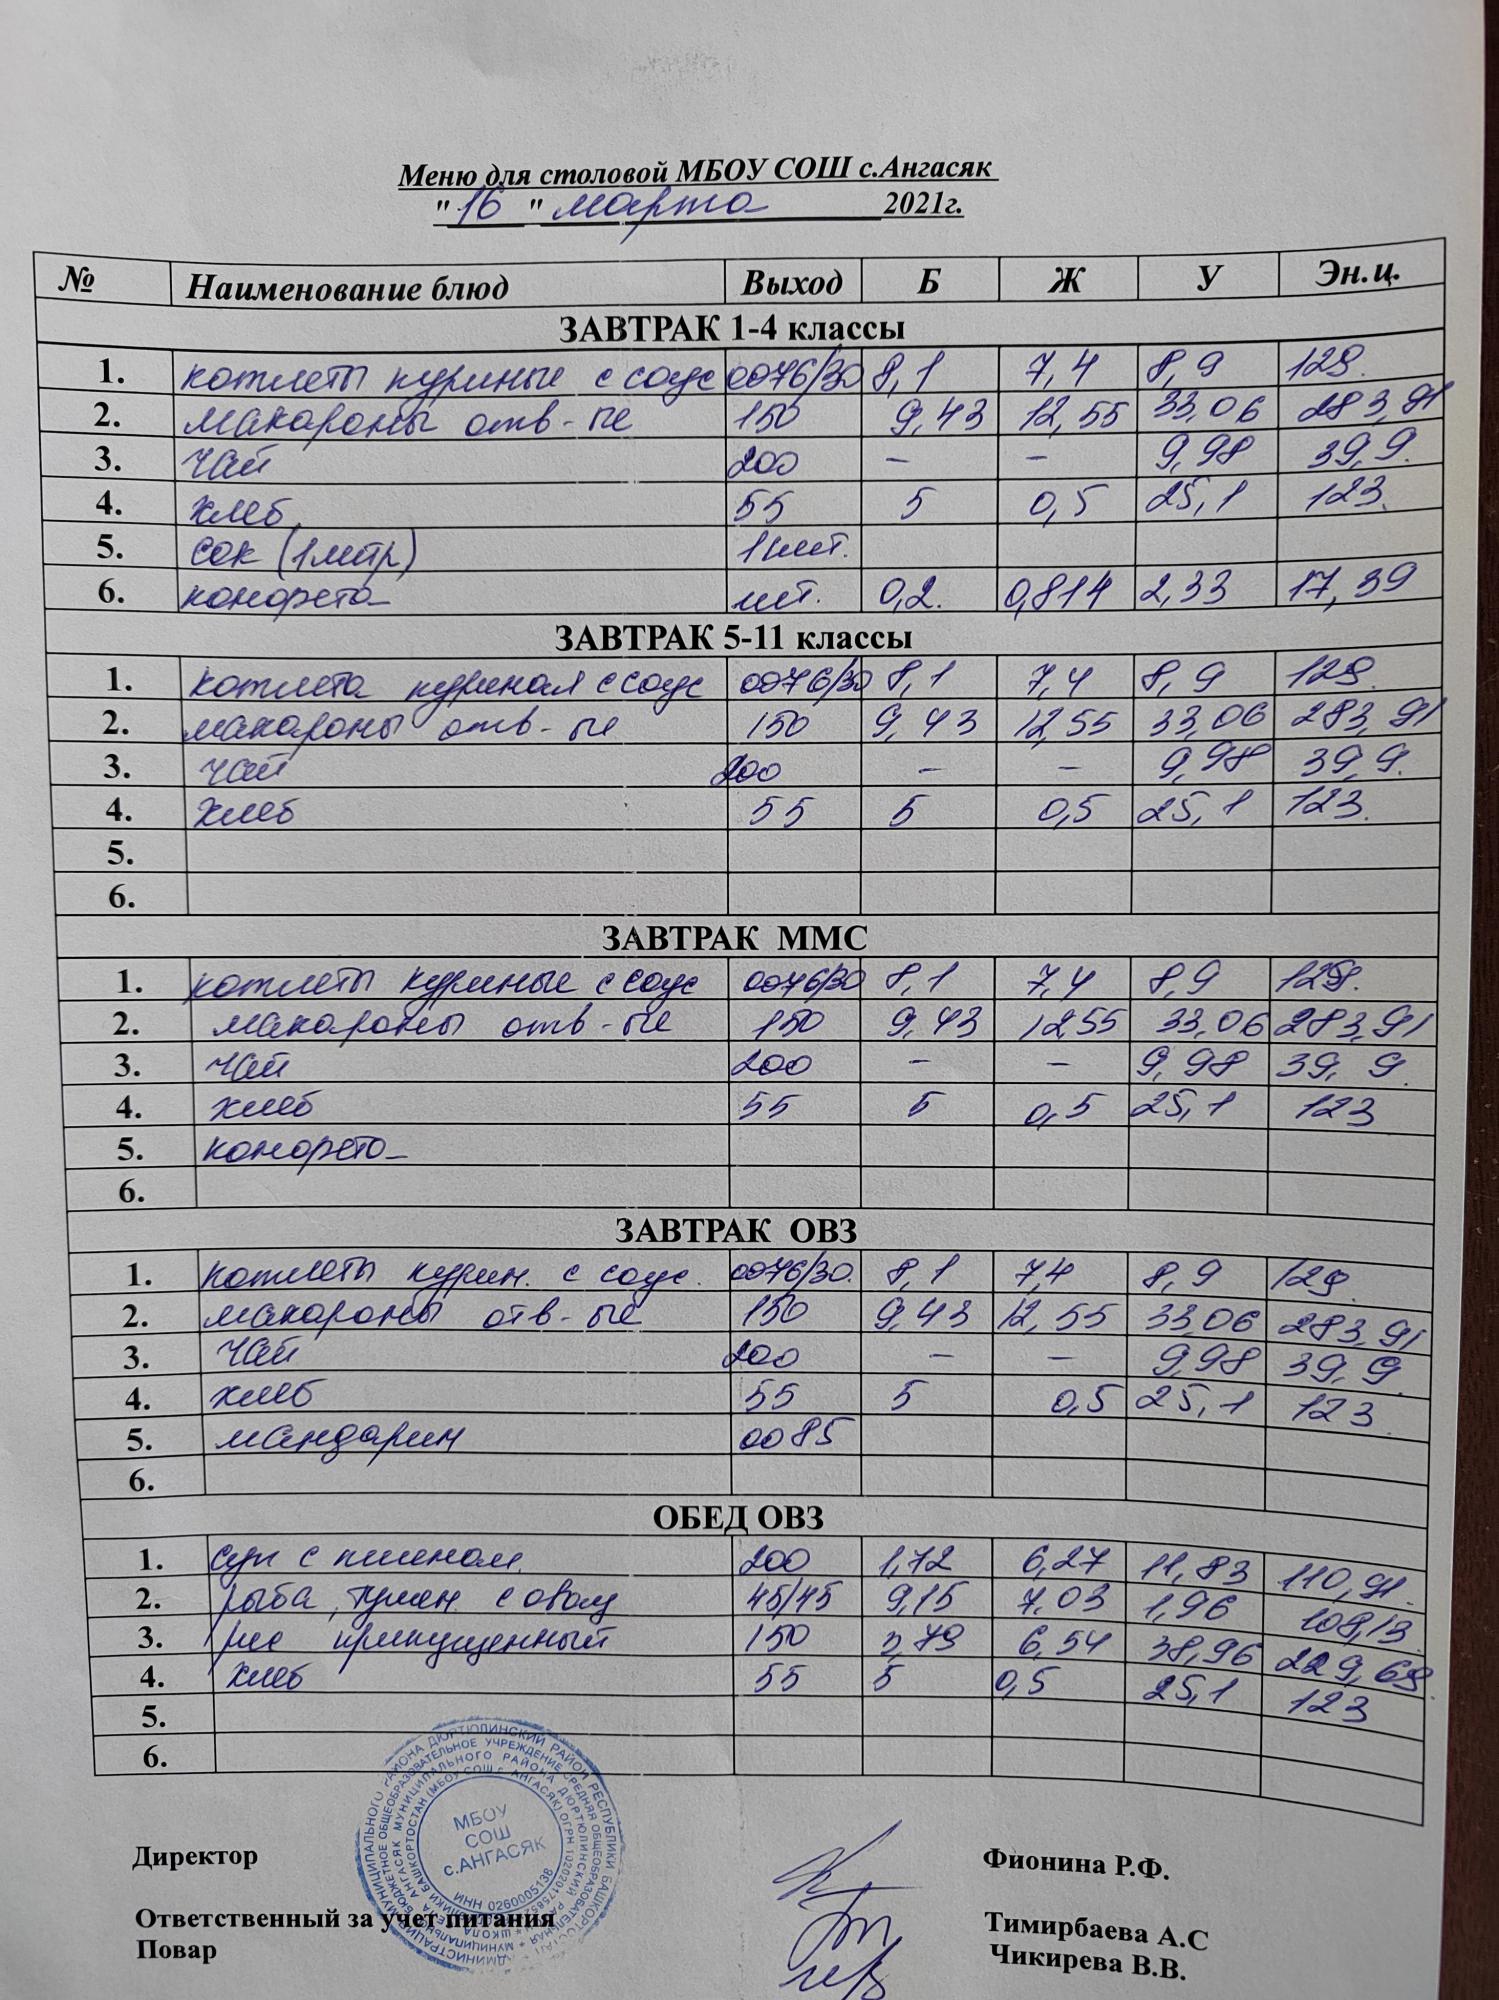 Меню для столовой МБОУ СОШ с.Ангасяк
"16" марта 2021г.
№ Наименование блюд Выход Б Ж У Эн.ц.
ЗАВТРАК 1-4 классы
1. котлеты куриные с соус 0076/30 8,1 7,4 8,9 128.
2. макароны отв-ые 150 9,43 12,55 33,06 283,91
3. чай 200 - - 9,98 39,9.
4. хлеб 55 5 0,5 25,1 123.
5. сок (1литр) 1шт.
6. конфета шт. 0,2. 0,814 2,33 17,39
ЗАВТРАК 5-11 классы
1. котлета куриная с соус 0076/30 8,1 7,4 8,9 128.
2. макароны отв-ые 150 9,43 12,55 33,06 283,91
3. чай 200 - - 9,98 39,9.
4. хлеб 55 5 0,5 25,1 123.
5.
6.
ЗАВТРАК ММС
1. котлеты куриные с соус 0076/30 8,1 7,4 8,9 128.
2. макароны отв-ые 150 9,43 12,55 33,06 283,91
3. чай 200 - - 9,98 39,9.
4. хлеб 55 5 0,5 25,1 123
5. конфета
6.
ЗАВТРАК ОВЗ
1. котлеты курин. с соус. 0076/30. 8,1 7,4 8,9 128.
2. макароны отв-ые 150 9,43 12,55 33,06 283,91
3. чай 200 - - 9,98 39,9.
4. хлеб 55 5 0,5 25,1 123.
5. мандарин 0085
6.
ОБЕД ОВЗ
1. суп с пшеном. 200 1,72 6,27 11,83 110,91.
2. рыба, тушен. с овощ 45/45 9,15 7,03 1,96 108,13.
3. рис припущенный 150 3,79 6,54 38,96 229,68.
4. хлеб 55 5 0,5 25,1 123
5.
6.
МБОУ
СОШ
с.АНГАСЯК
ИНН 0260005138
Директор Фионина Р.Ф.
Ответственный за учет питания Тимирбаева А.С
Повар Чикирева В.В.